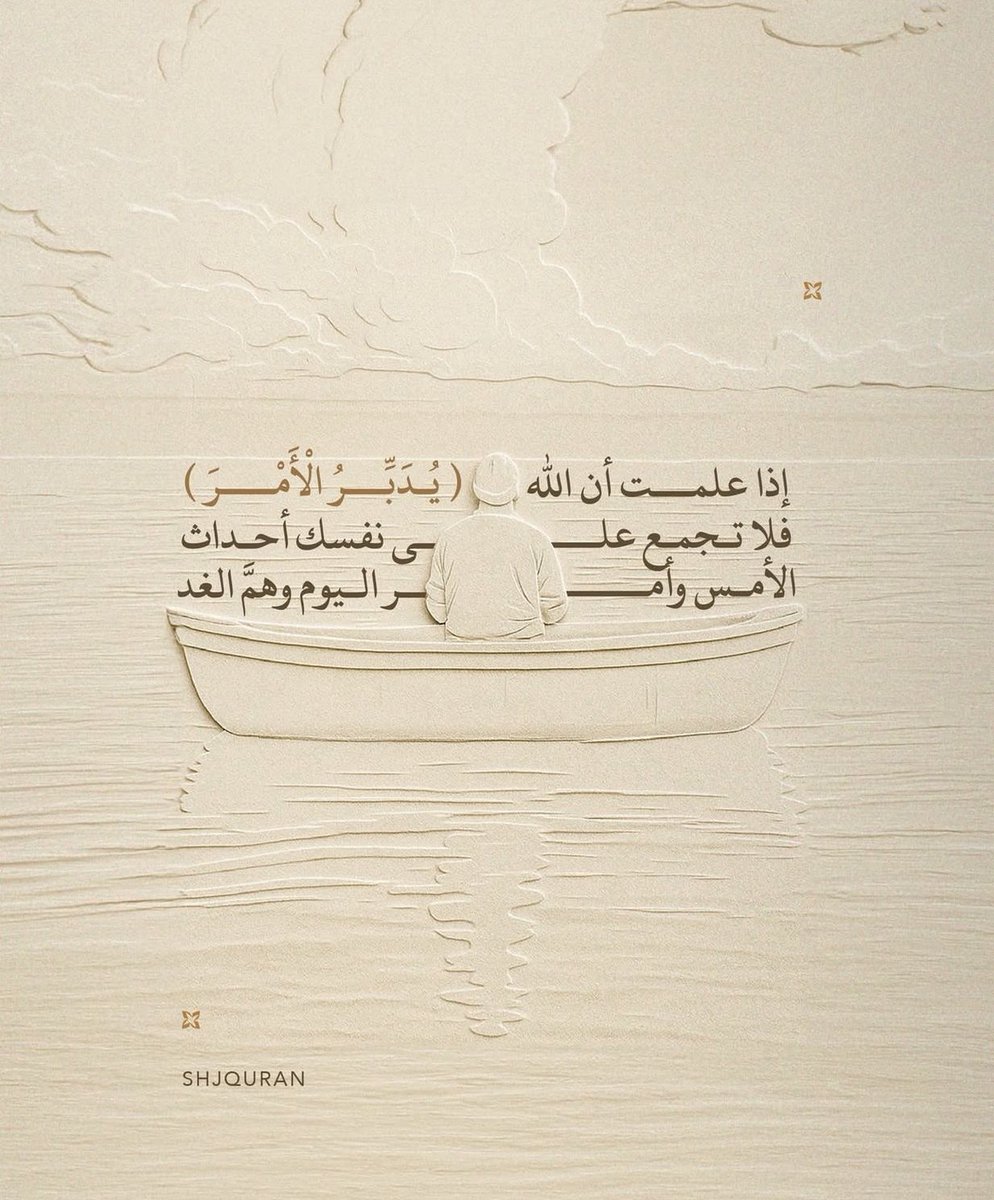 إذا علمت أن الله (يُدَبِّرُ الْأَمْرَ)
فلا تجمع على نفسك أحداث
الأمس وأمر اليوم وهمَّ الغد
SHJQURAN